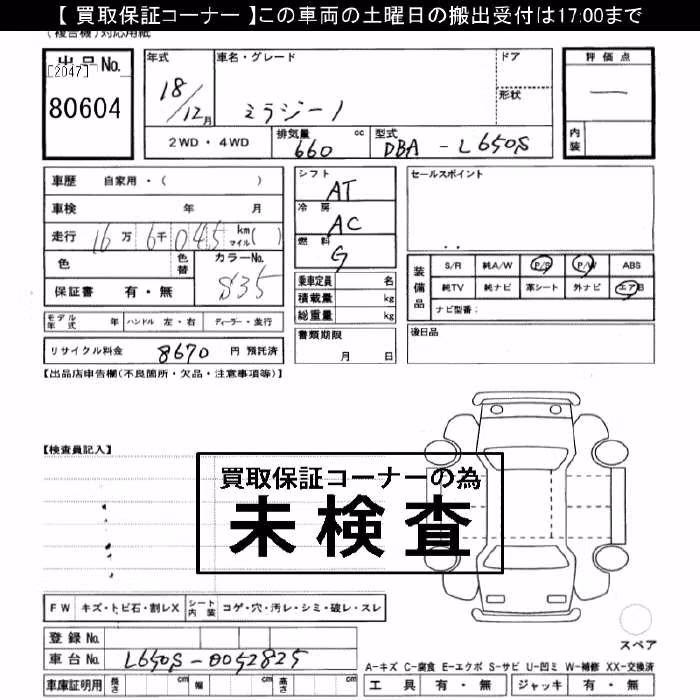 【 買取保証コーナー 】この車両の土曜日の搬出受付は17:00まで
(複合機)対応用紙
出品No.
[2047]
80604
年式
18/12月
車名・グレード
ミラジーノ
ドア
形状
評価点
—
内装
2WD・4WD
排気量 660 cc
型式 DBA-L650S
車歴 自家用・( )
車検 年 月
走行 16万6千045 km マイル( )
色
色替
カラーNo. S35
保証書 有・無
シフト AT
冷房 AC
燃料 G
乗車定員 名
積載量 kg
総重量 kg
セールスポイント
装備品
S/R 純A/W P/S P/W ABS
純TV 純ナビ 革シート 外ナビ エアB
ナビ型番:
モデル年式 年 ハンドル 左・右 ディーラー・並行
書類期限
月 日
後日品
リサイクル料金 8670 円 預託済
【出品店申告欄(不良箇所・欠品・注意事項等)】
【検査員記入】
買取保証コーナーの為
未検査
FW キズ・トビ石・割レX シート内装 コゲ・穴・汚レ・シミ・破レ・スレ
登録No.
車台No. L650S-0052825
車庫証明用 長さ cm 幅 cm 高さ cm
スペア
A-キズ C-腐食 E-エクボ S-サビ U-凹ミ W-補修 XX-交換済
工具 有・無 ジャッキ 有・無